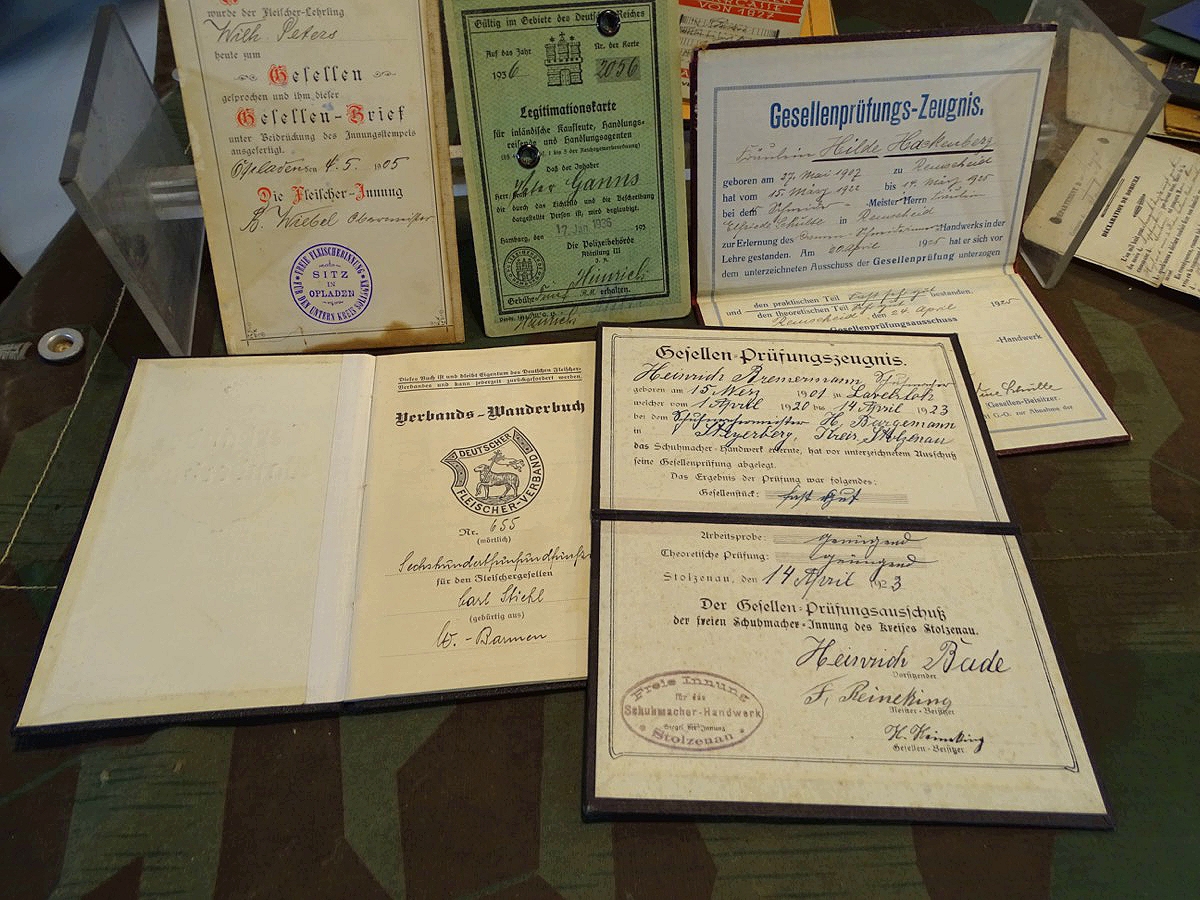 wurde der Fleischer-Lehrling
Wilh. Peters
heute zum
Gesellen
gesprochen und ihm dieser
Gesellen-Brief
unter Beidrückung des Innungsstempels
ausgefertigt.
Opladen 4. 5. 1905
Die Fleischer-Innung
Obermeister
FREIE FLEISCHERINNUNG
FÜR DEN UNTERN KREIS SOLINGEN
SITZ
IN
OPLADEN
Gültig im Gebiete des Deutschen Reiches
Auf das Jahr
1936
Nr. der Karte
2056
Legitimationskarte
für inländische Kaufleute, Handlungs-
reisende und Handlungsagenten
Daß der Inhaber
Herr Peter Ganns
die durch das Lichtbild und die Beschreibung
dargestellte Person ist, wird beglaubigt.
Hamburg, den 17. Jan. 1936 193
Die Polizeibehörde
Abteilung III
Hinrich
Gebühr erhalten.
Hinrich
VON 1927
Gesellenprüfungs-Zeugnis.
Fräulein Hilde Hackenberg
geboren am 27. Mai 1907 zu Remscheid
hat vom 15. März 1922 bis 14. März 1925
bei dem -Meister Herrn
Elfriede Schulte in Remscheid
zur Erlernung des Handwerks in der
Lehre gestanden. Am 20 April 1925 hat er sich vor
dem unterzeichneten Ausschuss der Gesellenprüfung unterzogen
den praktischen Teil fast sehr gut bestanden.
und den theoretischen Teil
Remscheid, den 24. April 1925
Gesellenprüfungsausschuss
-Handwerk
Schulte
Gesellen-Beisitzer.
G.-O. zur Abnahme der
DÉCLARATION DE DOMICILE
Dieses Buch ist und bleibt Eigentum des Deutschen Fleischer-
Verbandes und kann jederzeit zurückgefordert werden.
Verbands-Wanderbuch
DEUTSCHER
FLEISCHER-VERBAND
Nr. 655
(wörtlich)
Sechshundertfünfundfünfzig
für den Fleischergesellen
Carl Stiehl
(gebürtig aus)
W.-Barmen
Gesellen-Prüfungszeugnis.
Heinrich Bremermann Schuhmacher
geboren am 15 März 1901 zu Lavelsloh
welcher vom 1 April 1920 bis 14 April 1923
bei dem Schuhmachermeister H. Bargemann
in Steyerberg, Kreis Stolzenau
das Schuhmacher-Handwerk erlernte, hat vor unterzeichnetem Ausschuß
seine Gesellenprüfung abgelegt.
Das Ergebnis der Prüfung war folgendes:
Gesellenstück: fast gut
Arbeitsprobe: genügend
Theoretische Prüfung: genügend
Stolzenau, den 14 April 1923
Der Gesellen-Prüfungsausschuß
der freien Schuhmacher-Innung des Kreises Stolzenau.
Heinrich Bade
Vorsitzender
F. Reineking
Meister-Beisitzer
H. Heineking
Gesellen-Beisitzer
Freie Innung
für das
Schuhmacher-Handwerk
Siegel der Innung
Stolzenau